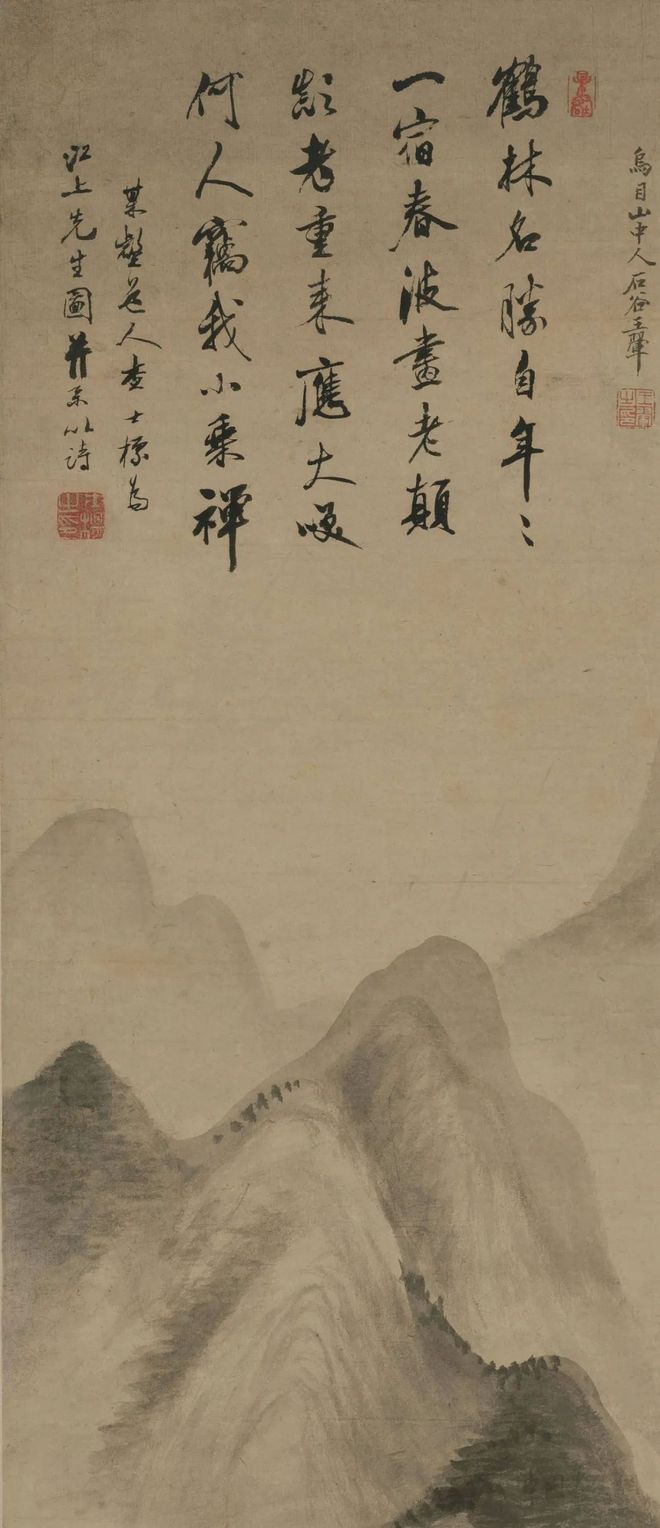 烏目山中人石谷王翬
王翬之印
鶴林名勝自年〻
一宿春波畫老顛
顛老重來應大咲
何人竊我小乘禪
某壑道人查士標為
江上先生圖并系以詩